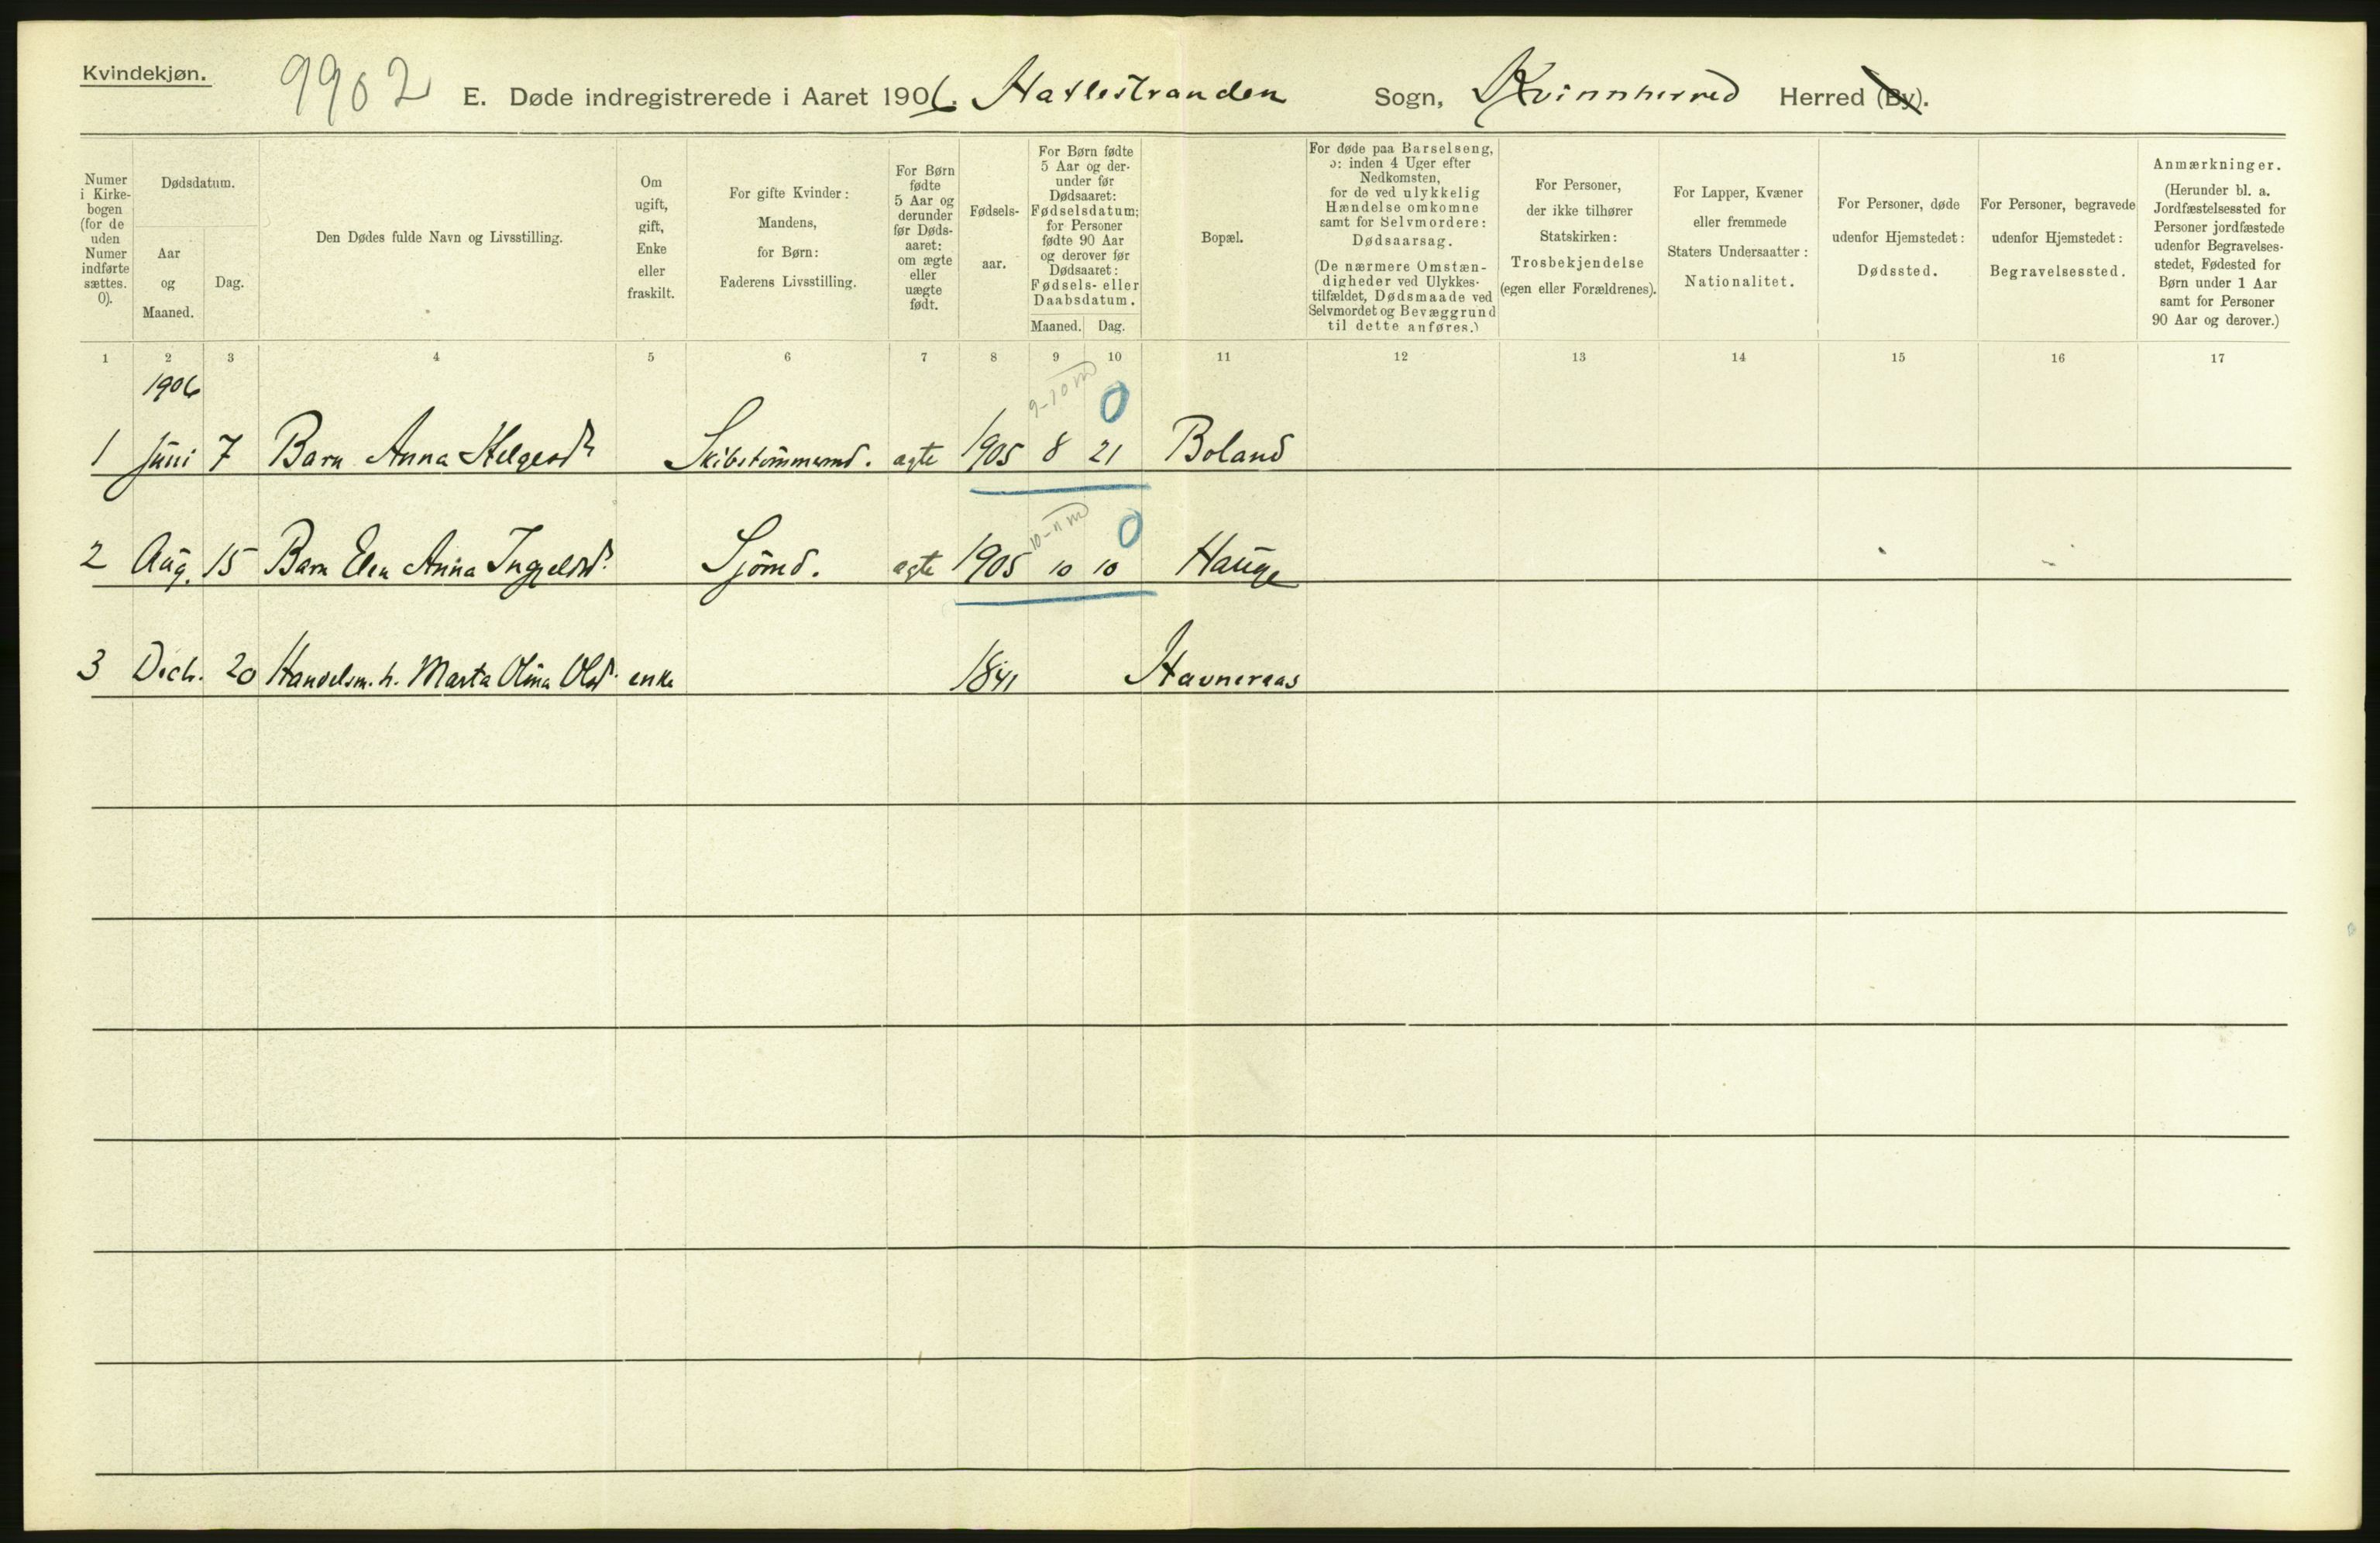 Kvindekjøn.
9902
E. Døde indregistrerede i Aaret 1906. Hatlestranden Sogn, Kvinnherred Herred (By).
Numer i Kirkebogen (for de uden Numer indførte sættes. 0).
Dødsdatum.
Aar og Maaned.
Dag.
Den Dødes fulde Navn og Livsstilling.
Om ugift, gift, Enke eller fraskilt.
For gifte Kvinder: Mandens, for Børn: Faderens Livsstilling.
For Børn fødte 5 Aar og derunder før Dødsaaret: om ægte eller uægte født.
Fødselsaar.
For Børn fødte 5 Aar og derunder før Dødsaaret: Fødselsdatum; for Personer fødte 90 Aar og derover før Dødsaaret: Fødsels- eller Daabsdatum.
Maaned. Dag.
Bopæl.
For døde paa Barselseng, ɔ: inden 4 Uger efter Nedkomsten, for de ved ulykkelig Hændelse omkomne samt for Selvmordere: Dødsaarsag. (De nærmere Omstændigheder ved Ulykkestilfældet, Dødsmaade ved Selvmordet og Bevæggrund til dette anføres.)
For Personer, der ikke tilhører Statskirken: Trosbekjendelse (egen eller Forældrenes).
For Lapper, Kvæner eller fremmede Staters Undersaatter: Nationalitet.
For Personer, døde udenfor Hjemstedet: Dødssted.
For Personer, begravede udenfor Hjemstedet: Begravelsessted.
Anmærkninger. (Herunder bl. a. Jordfæstelsessted for Personer jordfæstede udenfor Begravelsesstedet, Fødested for Børn under 1 Aar samt for Personer 90 Aar og derover.)
1 2 3 4 5 6 7 8 9 10 11 12 13 14 15 16 17
1906
9-10 m 0
1 Juni 7 Barn Anna Helgesdr Skibstømmermd. ægte 1905 8 21 Boland
10-11 m 0
2 Aug. 15 Barn Elen Anna Ingjelsdr. Sjömd. ægte 1905 10 10 Hauge
3 Decb. 20 Handelsm. h. Marta Olina Olsdr. enke 1841 Havneraas